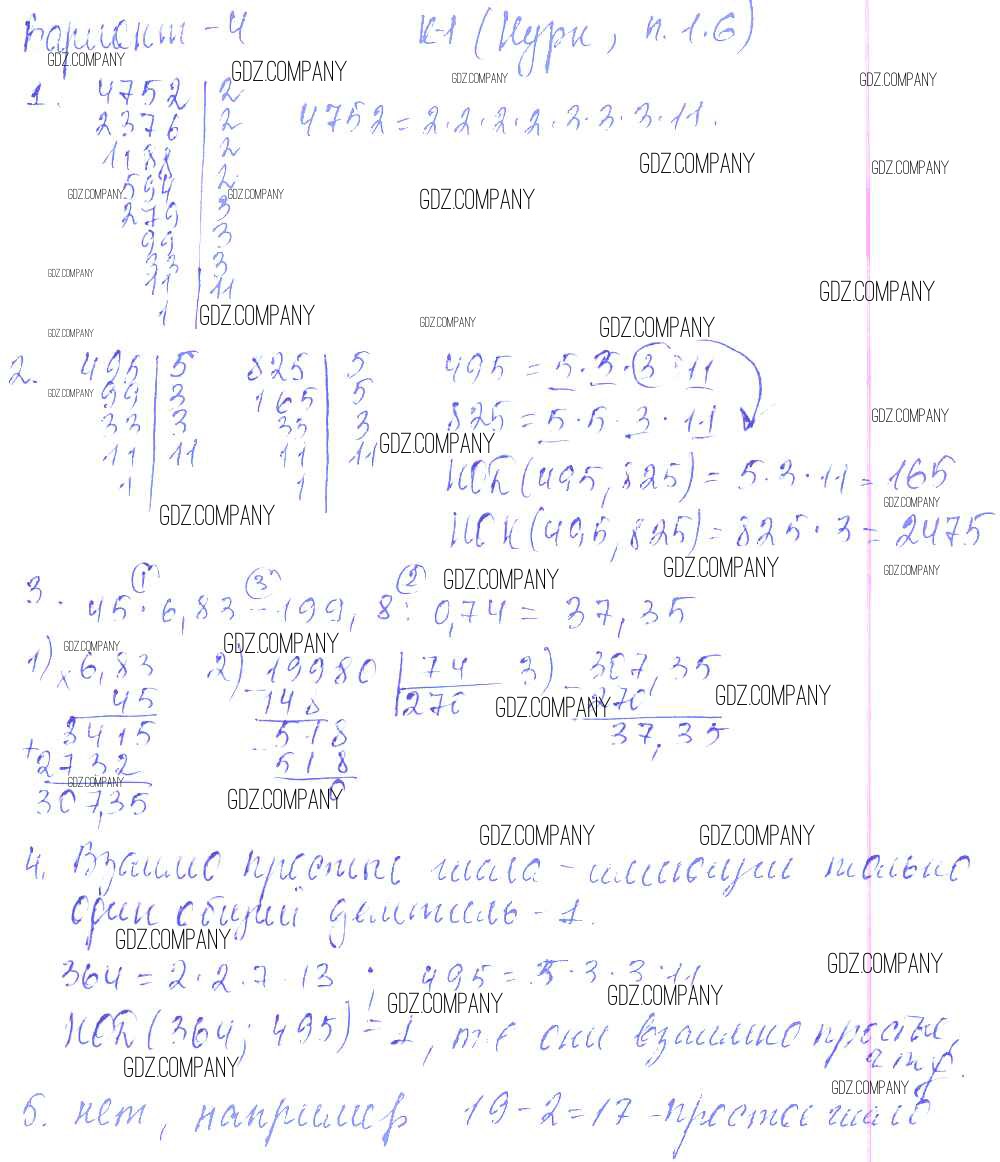 Вариант - 4 К-1 (Нурк, п. 1.6)
GDZ.COMPANY GDZ.COMPANY GDZ.COMPANY GDZ.COMPANY
1. 4752 | 2
2376 | 2 4752 = 2·2·2·2·3·3·3·11.
1188 | 2
GDZ.COMPANY GDZ.COMPANY
594 | 2
GDZ.COMPANY GDZ.COMPANY GDZ.COMPANY
279 | 3
99 | 3
33 | 3
GDZ.COMPANY
11 | 11
GDZ.COMPANY
1
GDZ.COMPANY GDZ.COMPANY GDZ.COMPANY
GDZ.COMPANY
2. 495 | 5 825 | 5 495 = 5·3·3·11
GDZ.COMPANY
99 | 3 165 | 5
33 | 3 33 | 3 825 = 5·5·3·11
GDZ.COMPANY
11 | 11 11 | 11
GDZ.COMPANY
1 1 НОД (495, 825) = 5·3·11 = 165
GDZ.COMPANY GDZ.COMPANY
НОК (495, 825) = 825·3 = 2475
GDZ.COMPANY GDZ.COMPANY GDZ.COMPANY
1 3 2
3. 45·6,83 - 199,8 : 0,74 = 37,35
GDZ.COMPANY GDZ.COMPANY
1) × 6,83 2) 19980 | 74 3) 307,35
45 148 270 - 270
GDZ.COMPANY GDZ.COMPANY
3415 518 37,35
+ 2732 518
GDZ.COMPANY
307,35 0
GDZ.COMPANY
GDZ.COMPANY GDZ.COMPANY
4. Взаимо простые числа - имеющии только
один общий делитель - 1.
GDZ.COMPANY
364 = 2·2·7·13 ; 495 = 5·3·3·11
GDZ.COMPANY
GDZ.COMPANY GDZ.COMPANY
НОД (364; 495) = 1, т.е они взаимно простые,
ч т д.
GDZ.COMPANY
GDZ.COMPANY
5. нет, например 19 - 2 = 17 - простое число